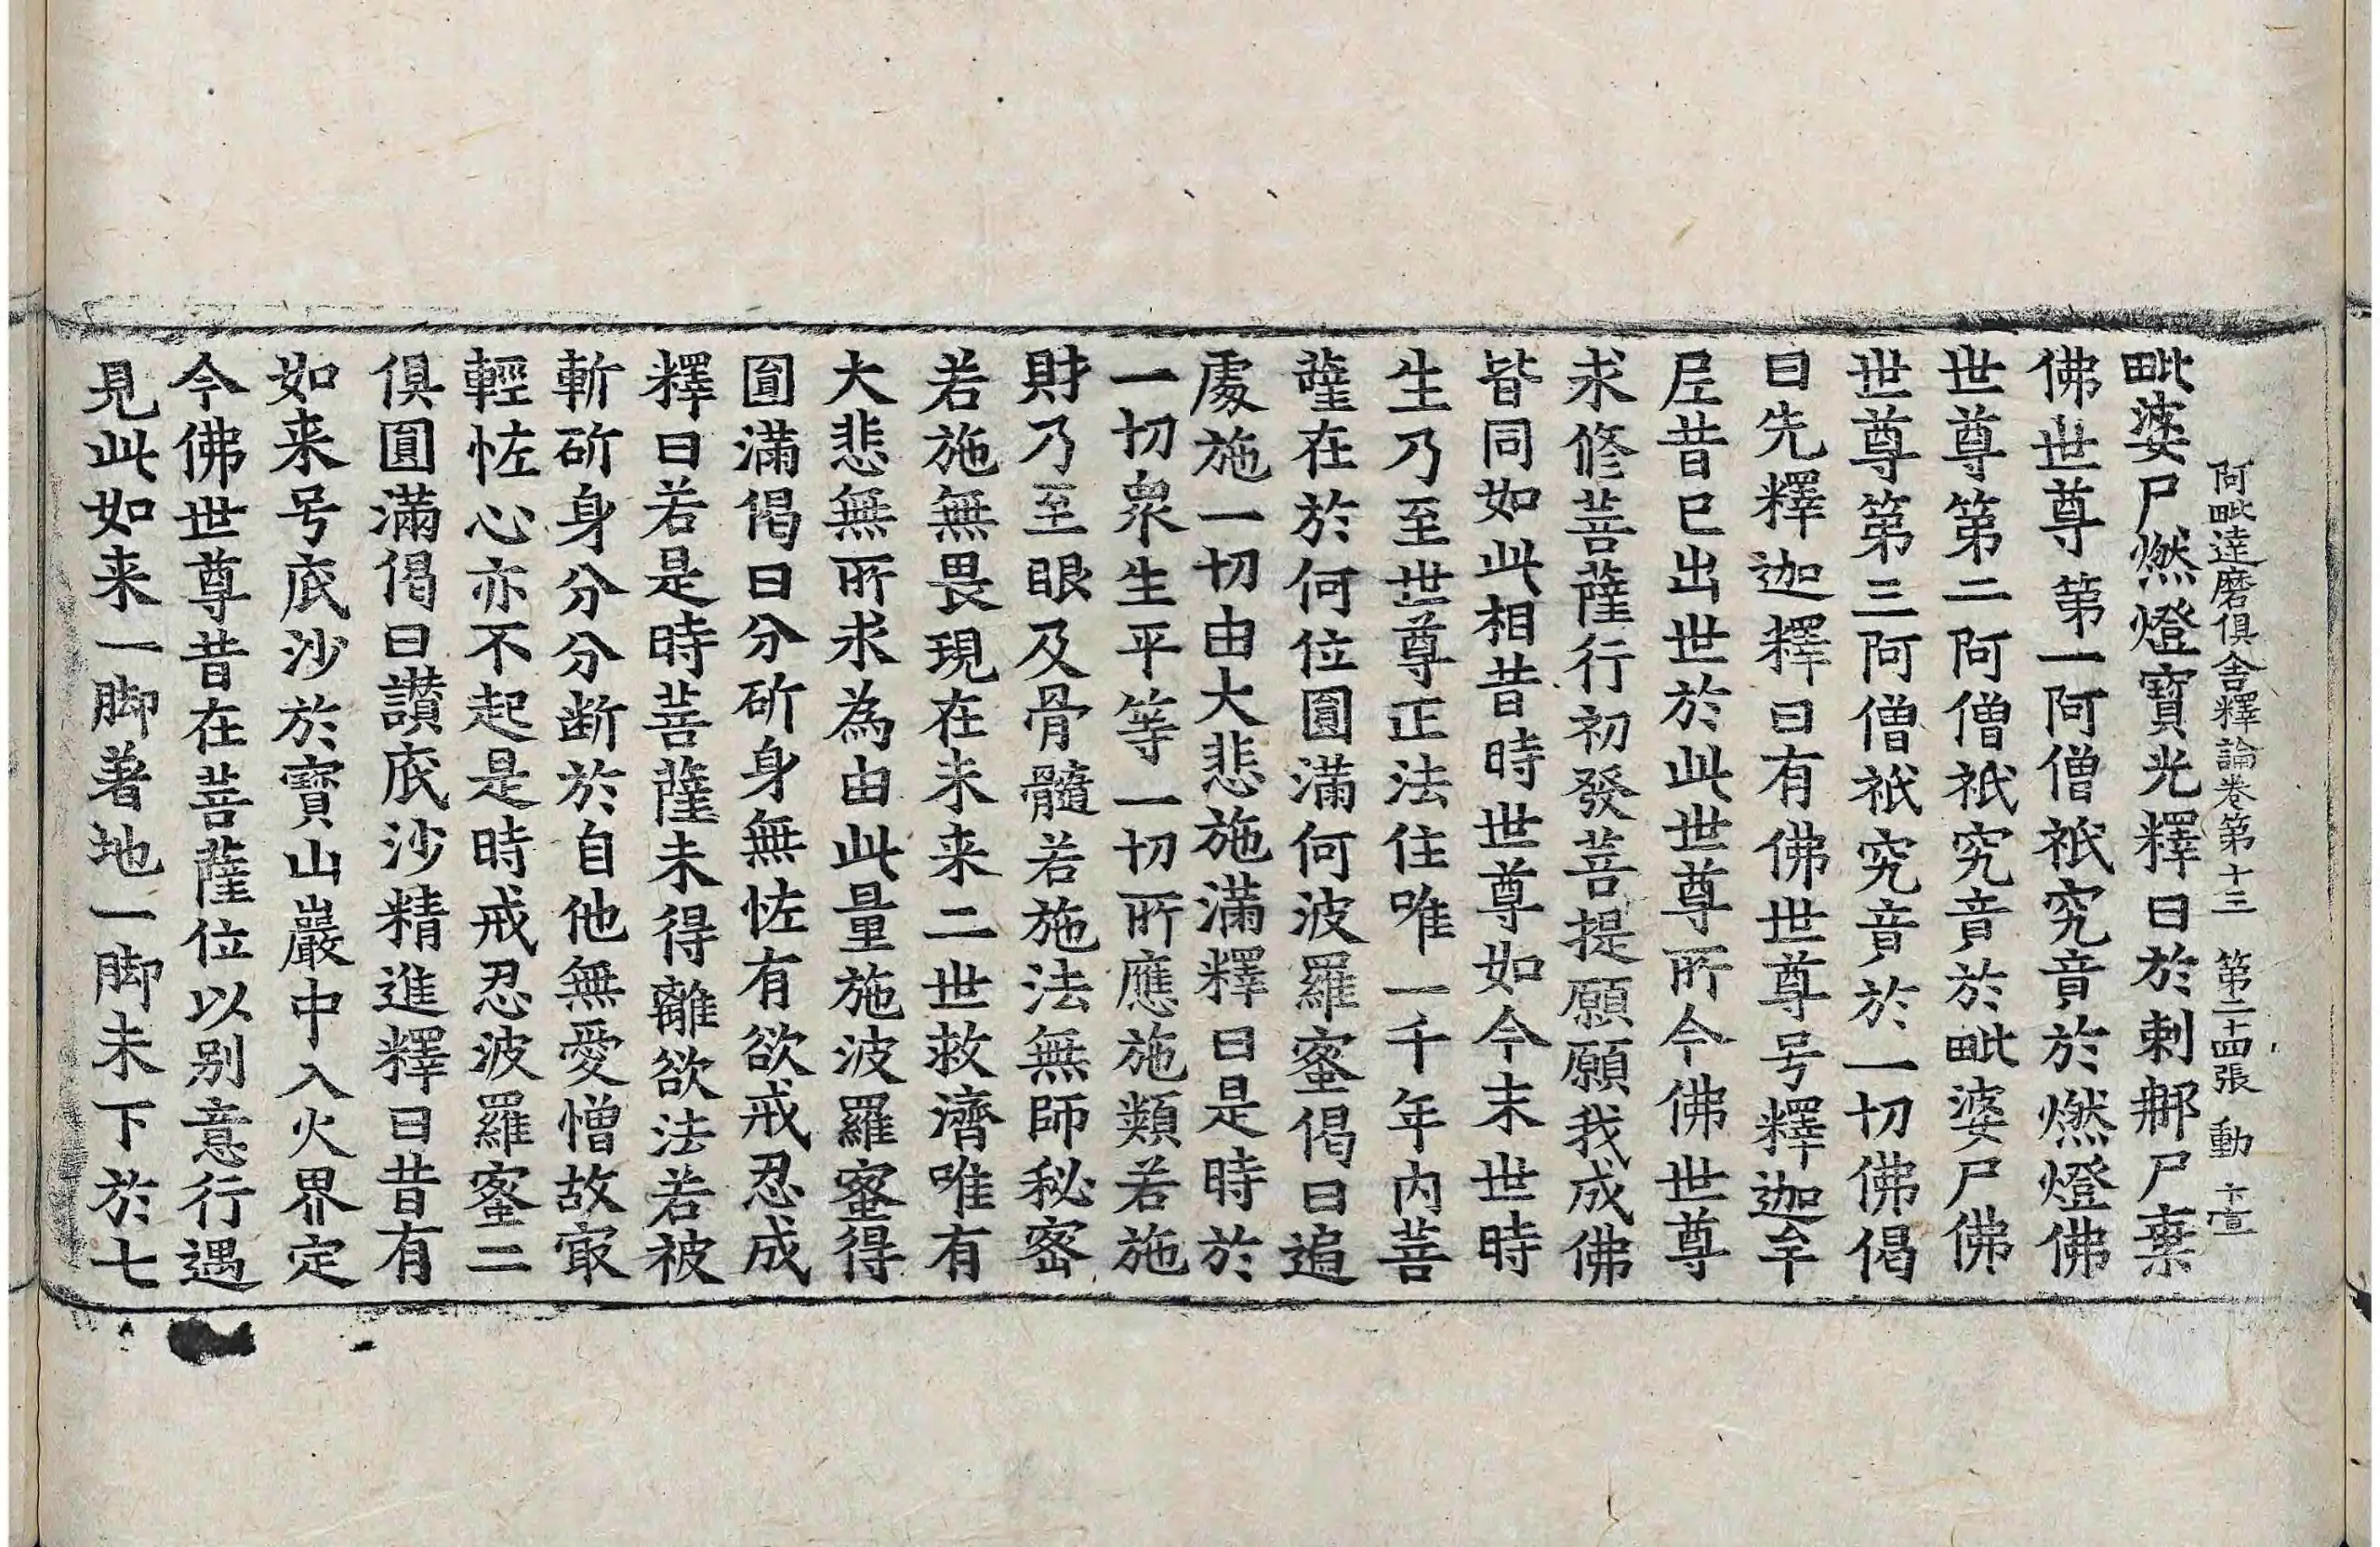 阿毗達磨俱舍釋論卷第十三 第二十四張 動
毗婆尸燃燈寶光釋曰於剌那尸棄
佛世尊第一阿僧祇究竟於燃燈佛
世尊第二阿僧祇究竟於毗婆尸佛
世尊第三阿僧祇究竟於一切佛偈
曰先釋迦釋曰有佛世尊号釋迦牟
𡰱昔已出世於此世尊所今佛世尊
求修菩薩行初發菩提願願我成佛
皆同如此相昔時世尊如今末世時
生乃至世尊正法住唯一千年内菩
薩在於何位圓滿何波羅蜜偈曰追
處施一切由大悲施滿釋曰是時於
一切衆生平等一切所應施類若施
財乃至眼及骨髓若施法無師秘密
若施無畏現在未来二世救濟唯有
大悲無所求為由此量施波羅蜜得
圓滿偈曰分斫身無恡有欲戒忍成
釋曰若是時菩薩未得離欲法若被
斬斫身分分断於自他無愛憎故㝡
輕恡心亦不起是時戒忍波羅蜜二
俱圓滿偈曰讃底沙精進釋曰昔有
如来号底沙於寶山巖中入火界定
今佛世尊昔在菩薩位以别意行遇
見此如来一脚著地一脚未下於七